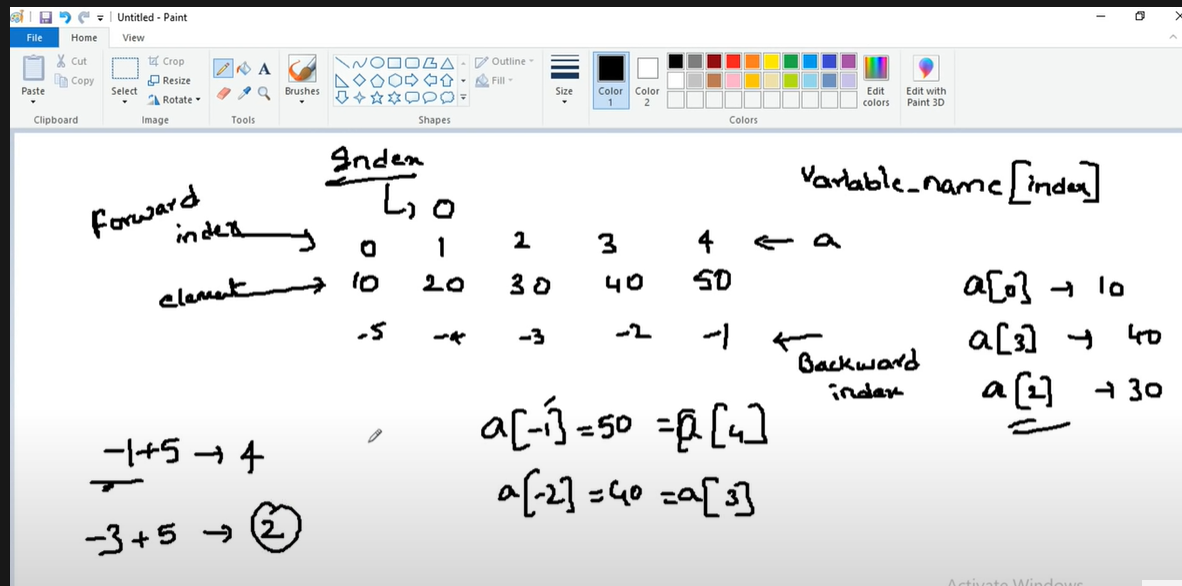 Untitled - Paint
File Home View
Paste
Cut
Copy
Clipboard
Select
Crop
Resize
Rotate
Image
A
Tools
Brushes
Outline
Fill
Shapes
Size
Color 1
Color 2
Edit colors
Colors
Edit with Paint 3D
Index
↳ 0
Variable_name[index]
Forward index →
0 1 2 3 4 ← a
element → 10 20 30 40 50
-5 -4 -3 -2 -1 ←
Backward index
a[0] → 10
a[3] → 40
a[2] → 30
a[-1] = 50 = a[4]
a[-2] = 40 = a[3]
-1+5 → 4
-3+5 → 2
Activate Windows